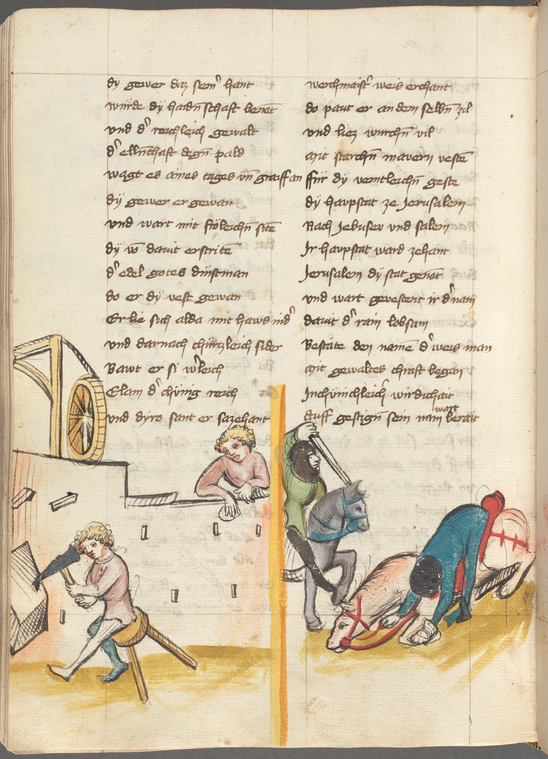 dÿ gewer daz sein hant
würde dÿ haidnschaft benant
vnd dˀ reichleich gewalt
dˀ ellnthaft degn pald
wagt es aines tages vn̄ graiff an
dÿ gewer er gewan
vnd wart mit fröleichn site
dÿ võ dauit erstrite
dˀ edel gotes dinstman
do er dÿ vest gewan
Er lie sich alda mit haws nidˀ
vnd darnach chürtzleich sider
Bawt er si
Elam dˀ chünig reich
vnd Hyro sant er sazehant
werchmaistˀ weis erchant
do pawt er an dem selbn zil
vnd liez wurchn vil
mit starchn mavern veste
Für dÿ veintleichn geste
dÿ hauptstat ze Jerusalem
Nach Jebuser vnd salem
Ir hauptstat ward zehant
Jerusalem dÿ stat genant
vnd wart geuestent ir dˀ nam
dauit dˀ rain lobsam
Bestate den namen dˀ weis man
mit gewaltes chraft began
In chünichleichˀ wirdichait
Auff gestign sein nam wart berait